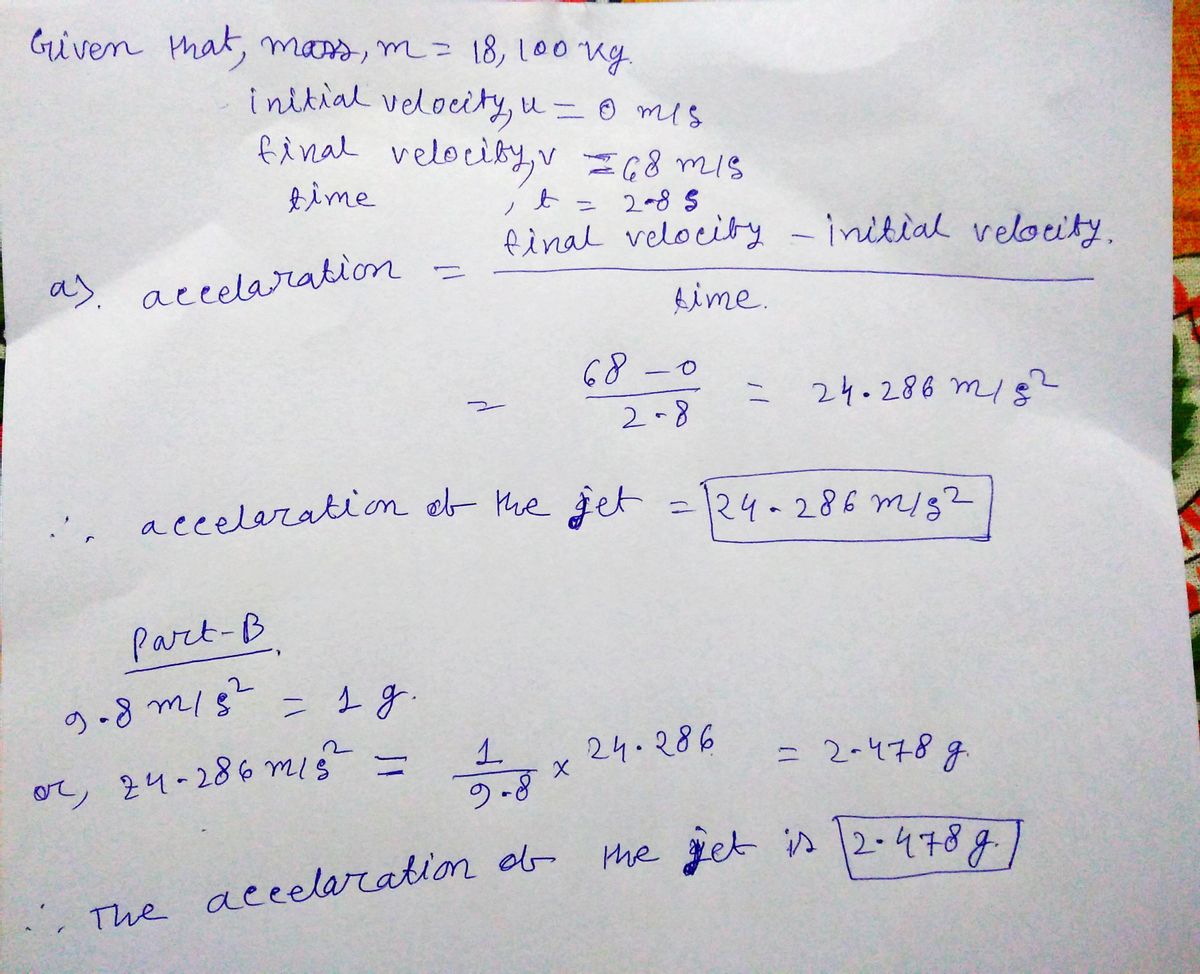 Given that, mass, m = 18,100 kg.
initial velocity, u = 0 m/s
final velocity, v = 68 m/s
time , t = 2.8 s
a). accelaration = final velocity - initial velocity.
time.
= 68 - 0 / 2.8 = 24.286 m/s²
∴ accelaration of the jet = 24.286 m/s²
Part-B,
9.8 m/s² = 1 g.
or, 24.286 m/s² = 1 / 9.8 x 24.286 = 2.478 g.
∴ The accelaration of the jet is 2.478 g.